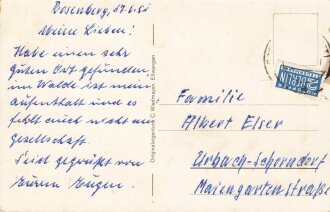 Rosenberg, 17.6.51
Meine Lieben!
Habe einen sehr
guten Ort gefunden
im Walde ist mein
Aufenthalt und es
fehlt auch nicht an
Gesellschaft.
Seid gegrüßt von
Eurem Eugen.
Familie
Albert Elser
Urbach-Schorndorf
Maiengartenstraße
2
BERLIN